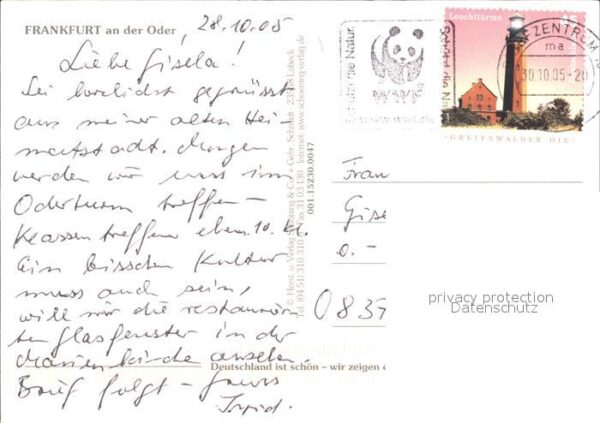 FRANKFURT an der Oder, 28.10.05
Liebe Gisela!
Sei herzlichst gegrüsst
aus meiner alten Hei-
matstadt. Morgen
werden wir uns im
Oderturm treffen –
Klassentreffen ehem. 10. Kl.
Ein bisschen Kultur
muss auch sein,
will mir die restaurier-
ten Glasfenster in der
Marienkirche ansehen.
Brief folgt –
© Horst u. Verlag Schöning & Co. + Gebr. Schmidt 23558 Lübeck
Internet: www.schoening-verlag.de
001.15230.0047
Deutschland ist schön – wir zeigen
Schützt die Natur
WWF
www.wwf.de
Schützt die Na
Leuchttürme
45
GREIFSWALDER OIE
BRIEFZENTRUM
ma
30.10.05-20
Frau
Gise
o. -
0835
privacy protection
Datenschutz